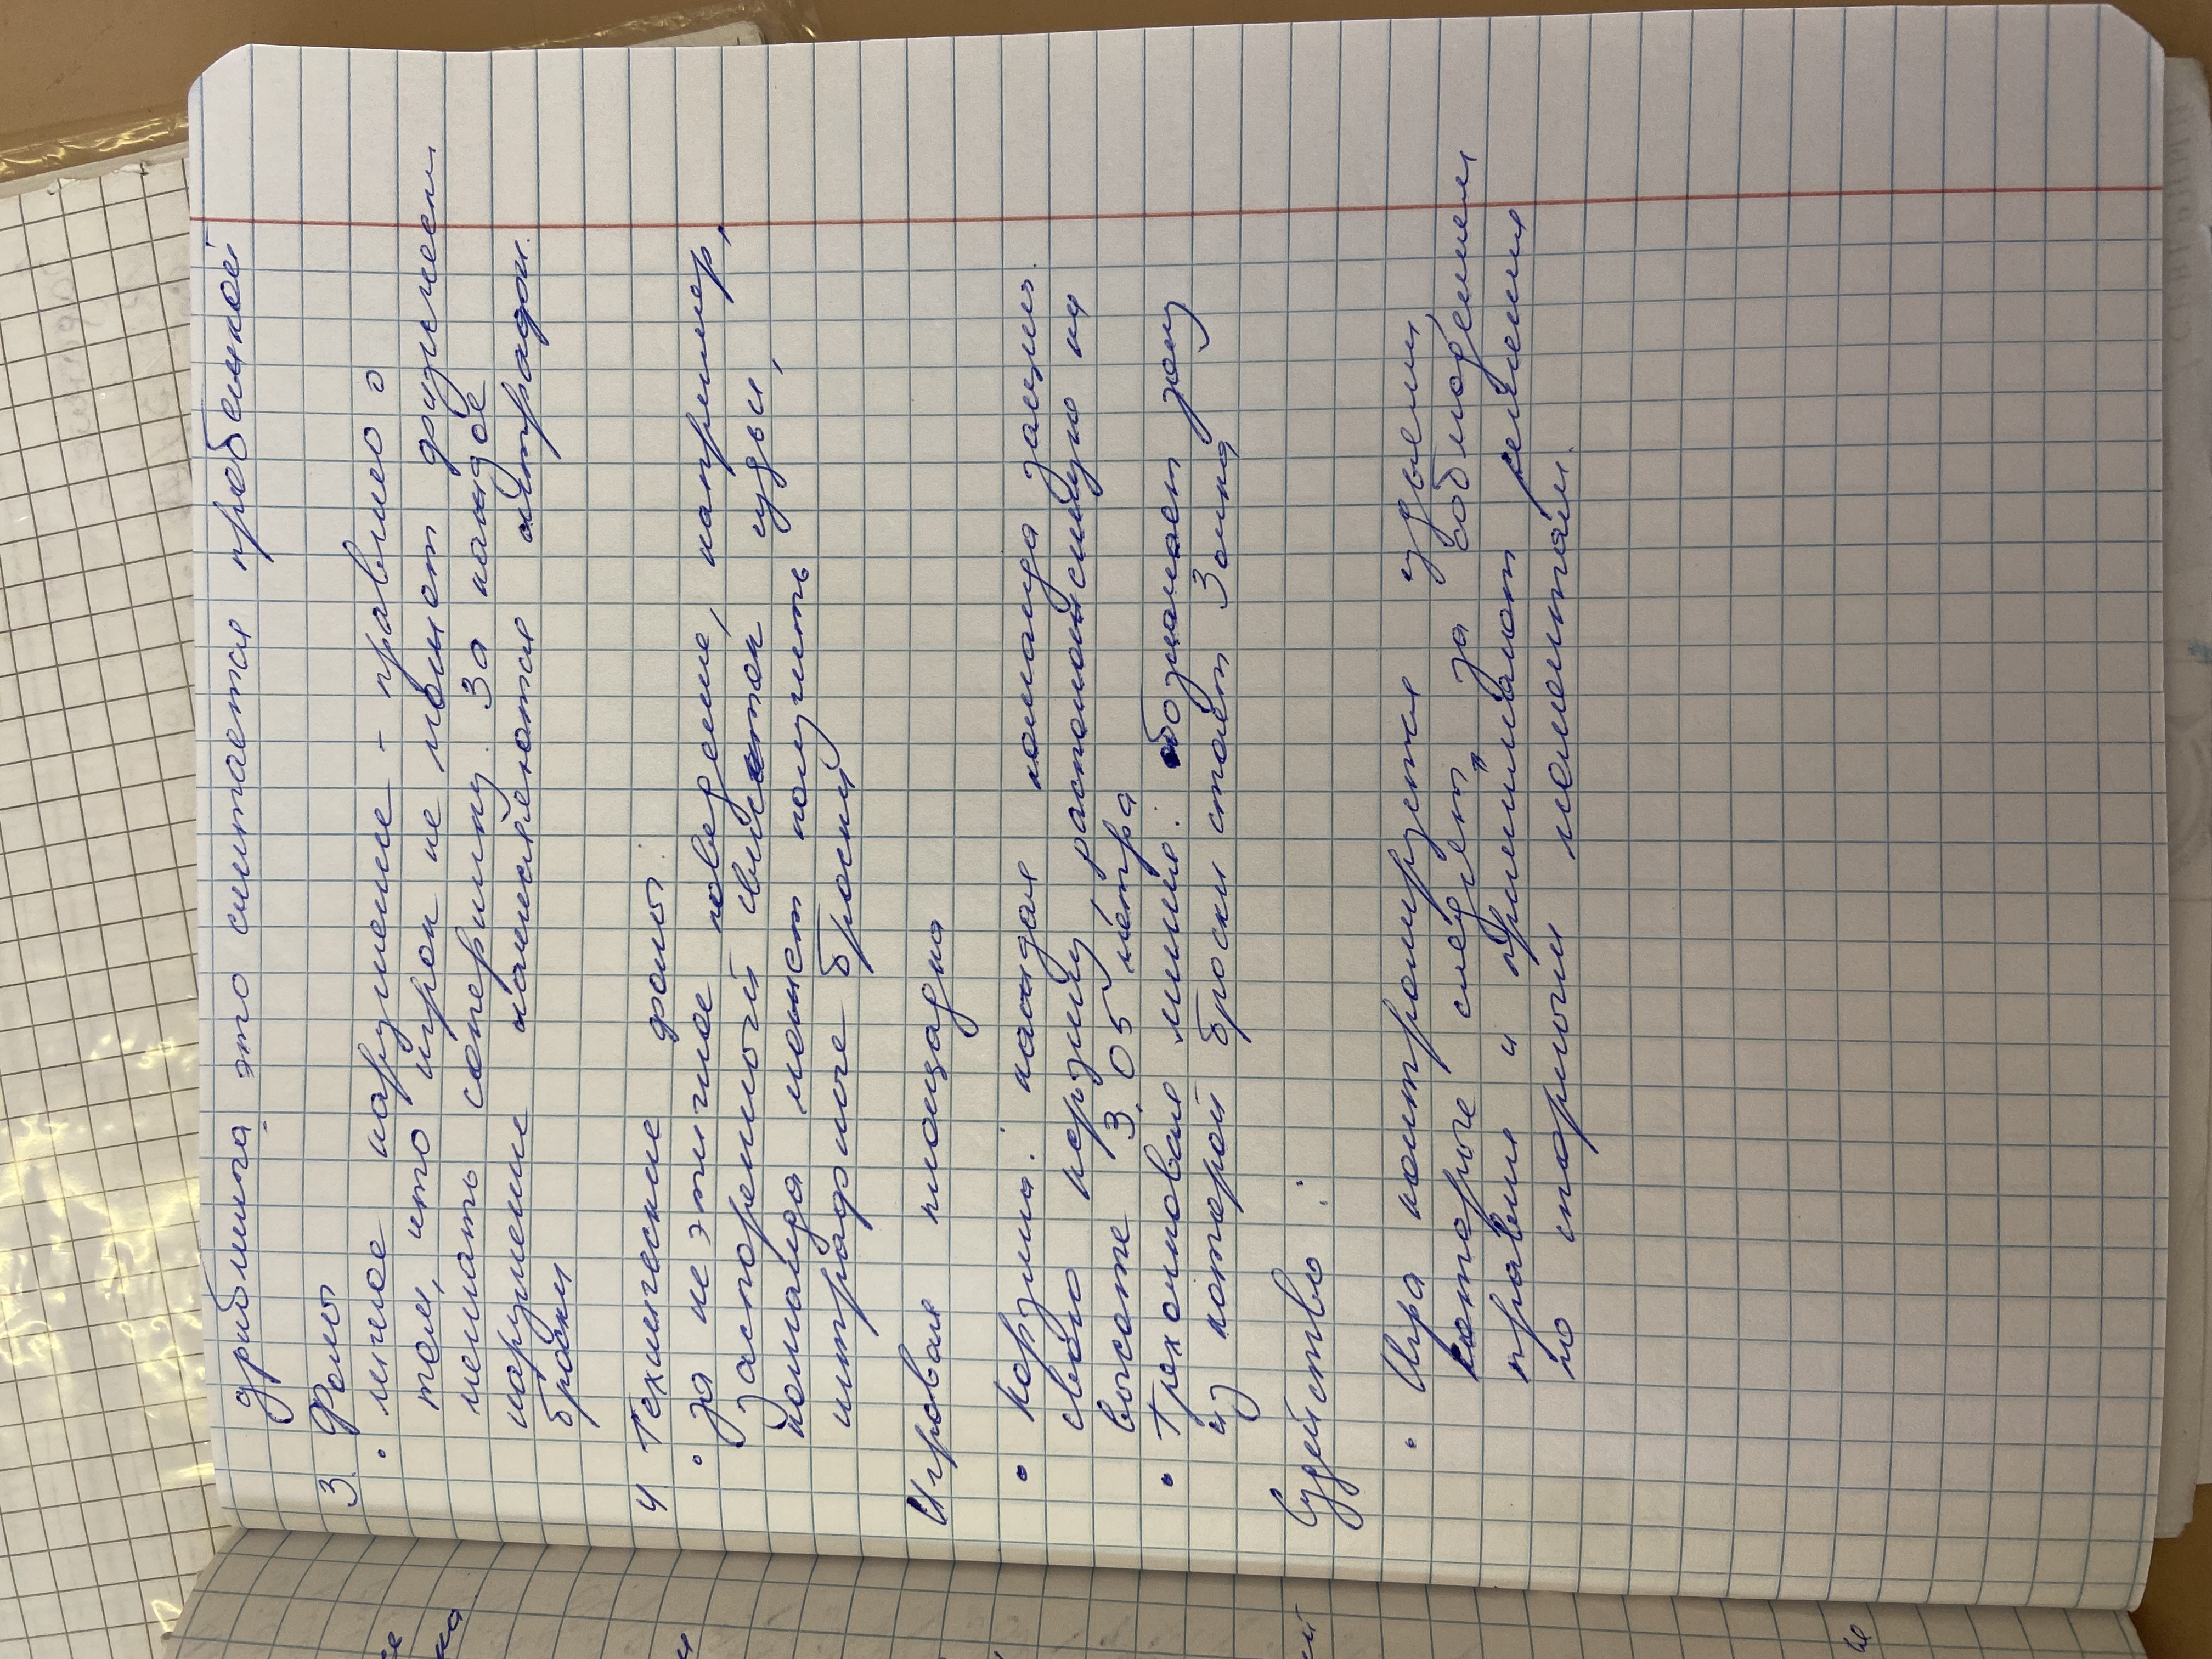 дриблинга это считается пробежкой
3. Фолы
• личное нарушение - правило о
том, что игрок не может физически
мешать сопернику. За каждое
нарушение начисляются штрафы.
броски
4. Технические фолы:
• за не этичное поведение, например,
заторенный свисток судьи,
команда может получить
штрафные броски
Игровая площадка
• Корзина: каждая команда защищ.
свою корзину расположенную на
высоте 3,05 метра
• Трехочковая линия: обозначает зону
из которой броски стоят 3 очка
Судейство:
• Игра контролируется судьями,
которые следят за соблюдением
правил и принимают решения
по спорным моментам.